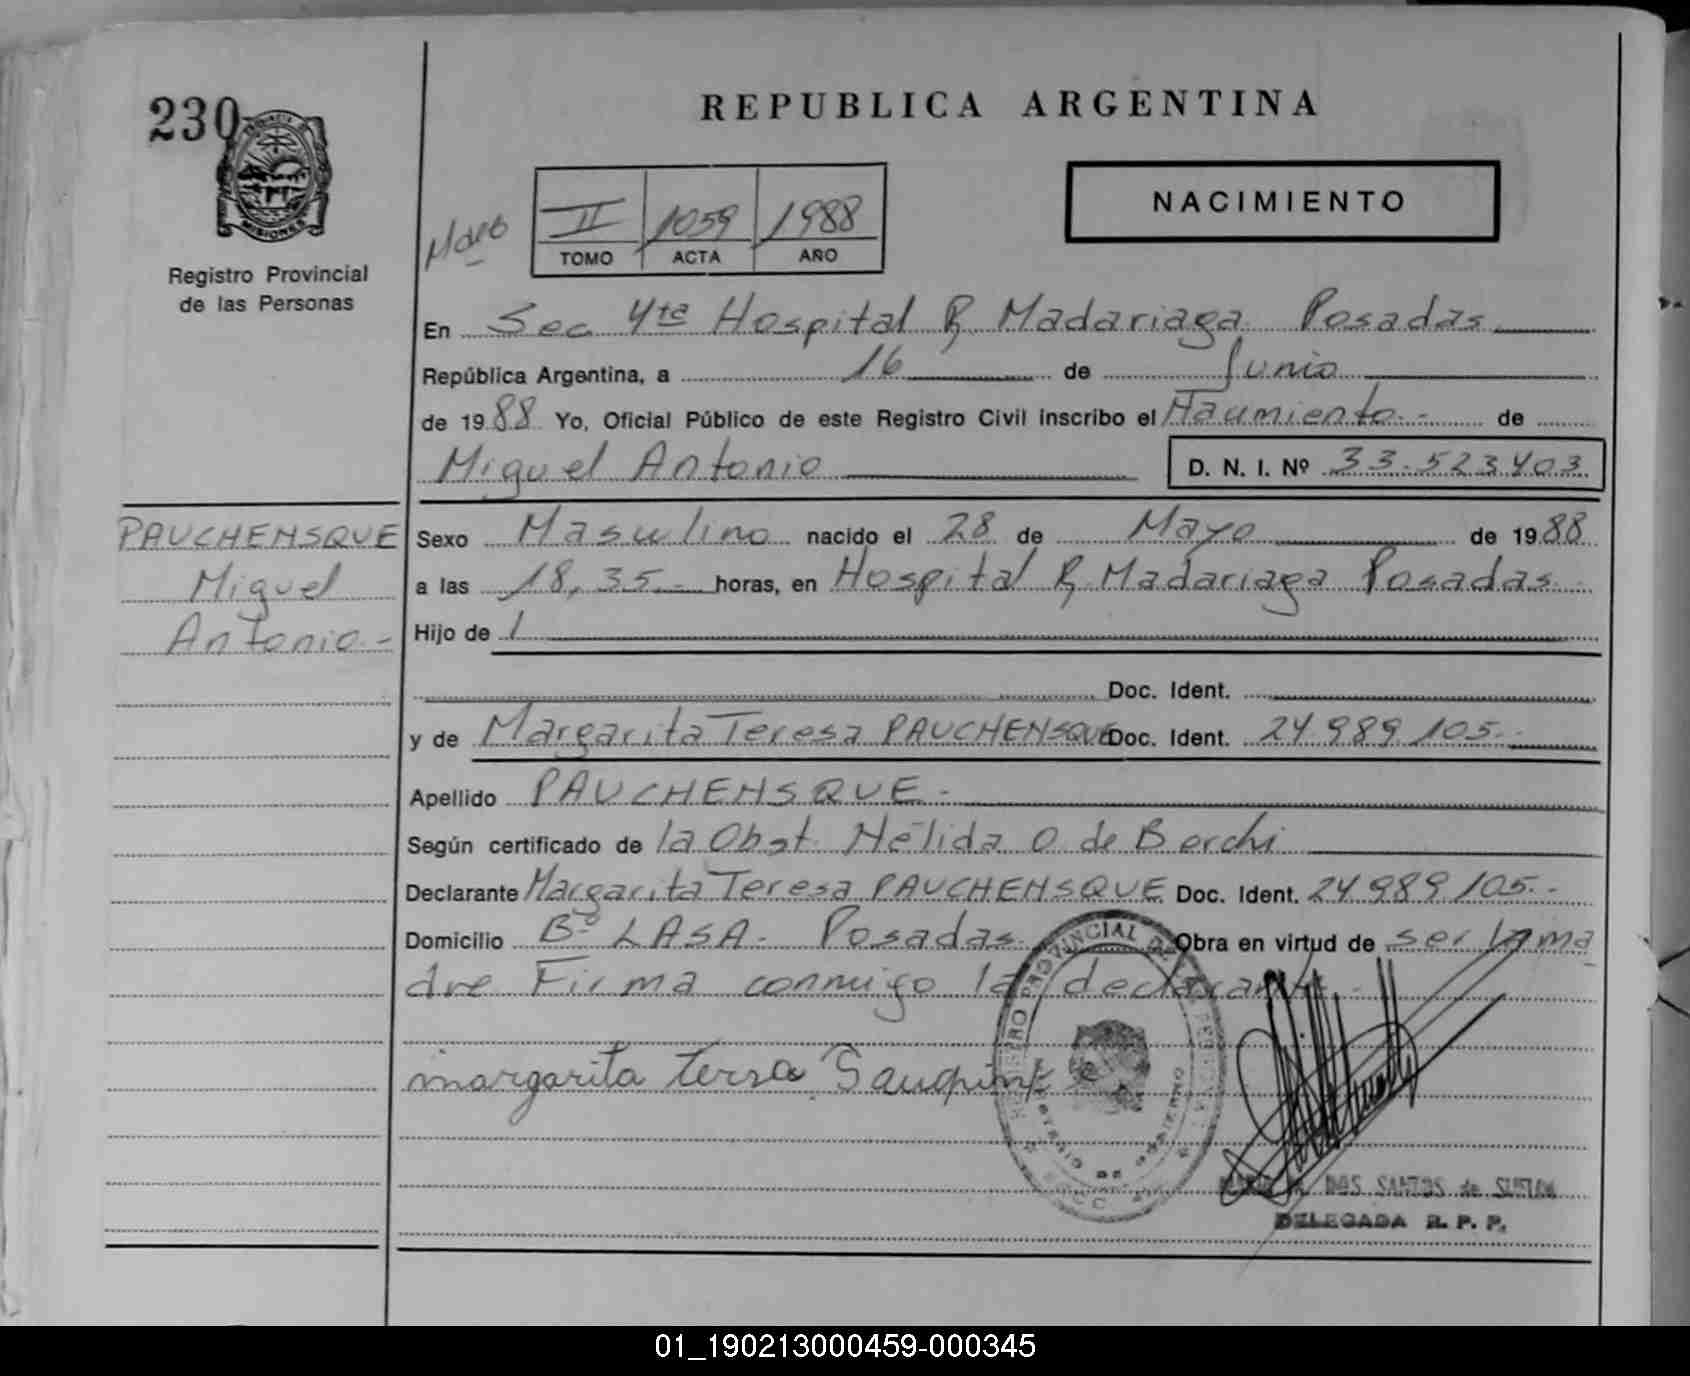 REPUBLICA ARGENTINA
230
MISIONES
Registro Provincial
de las Personas
NACIMIENTO
II 1059 1988
TOMO ACTA AÑO
En Sec 4ta Hospital R. Madariaga Posadas
República Argentina, a 16 de Junio
de 1988 Yo, Oficial Público de este Registro Civil inscribo el Nacimiento de
Miguel Antonio D. N. I. Nº 33.523403
PAUCHENSQUE
Miguel
Antonio.-
Sexo Masculino nacido el 28 de Mayo de 1988
a las 18,35.- horas, en Hospital R. Madariaga Posadas
Hijo de
Doc. Ident.
y de Margarita Teresa PAUCHENSQUE Doc. Ident. 24.989.105.-
Apellido PAUCHENSQUE.-
Según certificado de la Obst. Nélida O. de Berchi
Declarante Margarita Teresa PAUCHENSQUE Doc. Ident. 24.989.105.-
Domicilio Bº LASA. Posadas. Obra en virtud de ser la ma
dre Firma conmigo la declarante.-
margarita tersa
REGISTRO PROVINCIAL DE LAS PERSONAS
DOS SANTOS de
DELEGADA R. P. P.
01_190213000459-000345